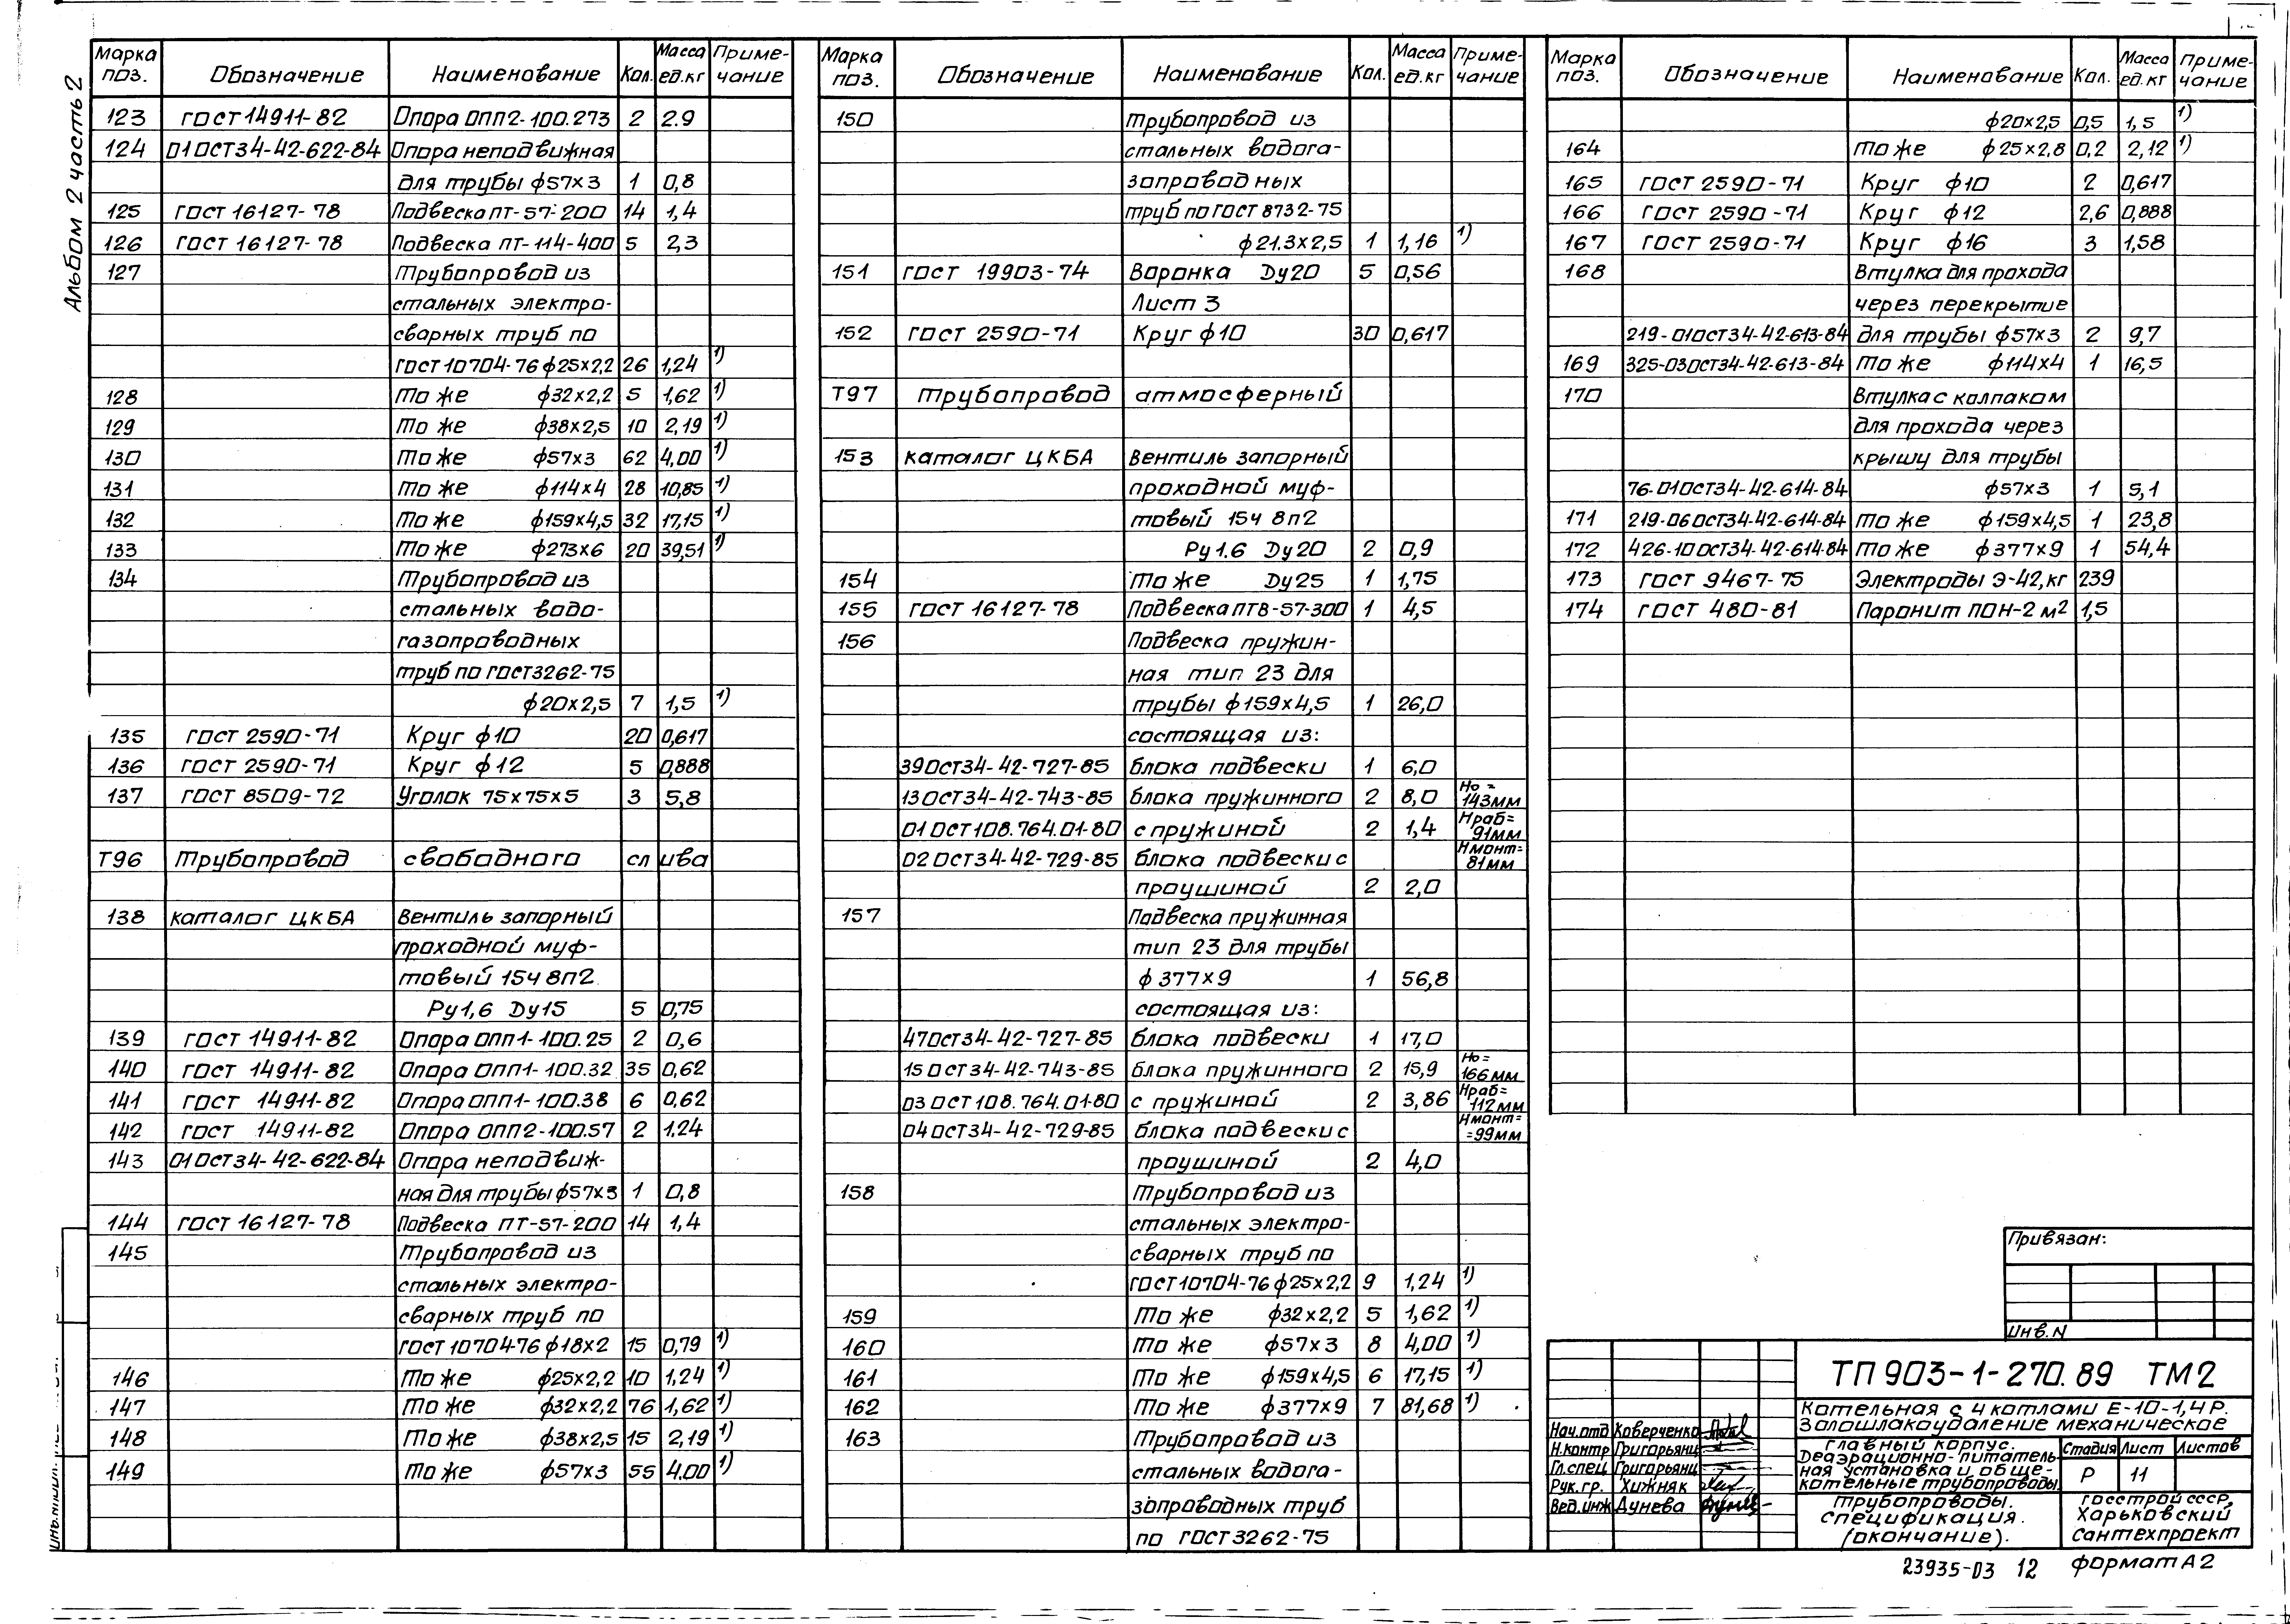 Альбом 2 часть 2
Марка поз. Обозначение Наименование Кол. Масса ед.кг Приме-чание
123 ГОСТ 14911-82 Опора ОПП2-100.273 2 2.9
124 01 ОСТ34-42-622-84 Опора неподвижная
для трубы ф57х3 1 0,8
125 ГОСТ 16127-78 Подвеска ПТ-57-200 14 1,4
126 ГОСТ 16127-78 Подвеска ПТ-114-400 5 2,3
127 Трубопровод из
стальных электро-
сварных труб по
ГОСТ 10704-76 ф25х2,2 26 1,24 1)
128 То же ф32х2,2 5 1,62 1)
129 То же ф38х2,5 10 2,19 1)
130 То же ф57х3 62 4,00 1)
131 То же ф114х4 28 10,85 1)
132 То же ф159х4,5 32 17,15 1)
133 То же ф273х6 20 39,51 1)
134 Трубопровод из
стальных водо-
газопроводных
труб по ГОСТ3262-75
ф20х2,5 7 1,5 1)
135 ГОСТ 2590-71 Круг ф10 20 0,617
136 ГОСТ 2590-71 Круг ф12 5 0,888
137 ГОСТ 8509-72 Уголок 75х75х5 3 5,8
Т96 Трубопровод свободного слива
138 каталог ЦКБА Вентиль запорный
проходной муф-
товый 15ч 8п2
Ру1,6 Ду15 5 0,75
139 ГОСТ 14911-82 Опора ОПП1-100.25 2 0,6
140 ГОСТ 14911-82 Опора ОПП1-100.32 35 0,62
141 ГОСТ 14911-82 Опора ОПП1-100.38 6 0,62
142 ГОСТ 14911-82 Опора ОПП2-100.57 2 1.24
143 01 ОСТ34-42-622-84 Опора неподвиж-
ная для трубы ф57х3 1 0,8
144 ГОСТ 16127-78 Подвеска ПТ-57-200 14 1,4
145 Трубопровод из
стальных электро-
сварных труб по
ГОСТ 10704-76 ф18х2 15 0,79 1)
146 То же ф25х2,2 10 1,24 1)
147 То же ф32х2,2 76 1,62 1)
148 То же ф38х2,5 15 2,19 1)
149 То же ф57х3 55 4.00 1)
Марка поз. Обозначение Наименование Кол. Масса ед.кг Приме-чание
150 Трубопровод из
стальных водога-
зопроводных
труб по ГОСТ 8732-75
ф21.3х2,5 1 1,16 1)
151 ГОСТ 19903-74 Воронка Ду20 5 0,56
Лист 3
152 ГОСТ 2590-71 Круг ф10 30 0,617
Т97 Трубопровод атмосферный
153 каталог ЦКБА Вентиль запорный
проходной муф-
товый 15ч 8п2
Ру1.6 Ду20 2 0,9
154 То же Ду25 1 1,75
155 ГОСТ 16127-78 Подвеска ПТВ-57-300 1 4,5
156 Подвеска пружин-
ная тип 23 для
трубы ф159х4,5 1 26,0
состоящая из:
39 ОСТ34-42-727-85 блока подвески 1 6,0
13 ОСТ34-42-743-85 блока пружинного 2 8,0 Но = 143мм
01 ОСТ108.764.01-80 с пружиной 2 1,4 Нраб= 91мм
02 ОСТ34-42-729-85 блока подвески с Нмонт= 81мм
проушиной 2 2,0
157 Подвеска пружинная
тип 23 для трубы
ф377х9 1 56,8
состоящая из:
47 ОСТ34-42-727-85 блока подвески 1 17,0
15 ОСТ34-42-743-85 блока пружинного 2 15,9 Но= 166мм
03 ОСТ108.764.01-80 с пружиной 2 3,86 Нраб= 112мм
04 ОСТ34-42-729-85 блока подвески с Нмонт= =99мм
проушиной 2 4,0
158 Трубопровод из
стальных электро-
сварных труб по
ГОСТ10704-76 ф25х2,2 9 1,24 1)
159 То же ф32х2,2 5 1,62 1)
160 То же ф57х3 8 4,00 1)
161 То же ф159х4,5 6 17,15 1)
162 То же ф377х9 7 81,68 1)
163 Трубопровод из
стальных водога-
зопроводных труб
по ГОСТ3262-75
Марка поз. Обозначение Наименование Кол. Масса ед.кг Приме-чание
ф20х2,5 0,5 1,5 1)
164 То же ф25х2,8 0,2 2,12 1)
165 ГОСТ 2590-71 Круг ф10 2 0,617
166 ГОСТ 2590-71 Круг ф12 2,6 0,888
167 ГОСТ 2590-71 Круг ф16 3 1,58
168 Втулка для прохода
через перекрытие
219-01ОСТ34-42-613-84 для трубы ф57х3 2 9,7
169 325-03ОСТ34-42-613-84 То же ф114х4 1 16,5
170 Втулка с колпаком
для прохода через
крышу для трубы
76-01ОСТ34-42-614-84 ф57х3 1 5,1
171 219-06ОСТ34-42-614-84 То же ф159х4,5 1 23,8
172 426-10ОСТ34-42-614-84 То же ф377х9 1 54,4
173 ГОСТ 9467-75 Электроды Э-42,кг 239
174 ГОСТ 480-81 Паронит ПОН-2 м² 1,5
Привязан:
Инв.N
ТП 903-1-270.89 ТМ2
Котельная с 4 котлами Е-10-1,4Р.
Золошлакоудаление механическое
Нач.отд Коверченко
Н.контр Григорьянц
Гл.спец Григорьянц
Рук.гр. Хижняк
Вед.инж Дунева
Главный корпус.
Деаэрационно-питатель-
ная установка и обще-
котельные трубопроводы.
Стадия Лист Листов
Р 11
Трубопроводы.
Спецификация.
(окончание).
Госстрой СССР,
Харьковский
Сантехпроект
23935-03 12 формат А2